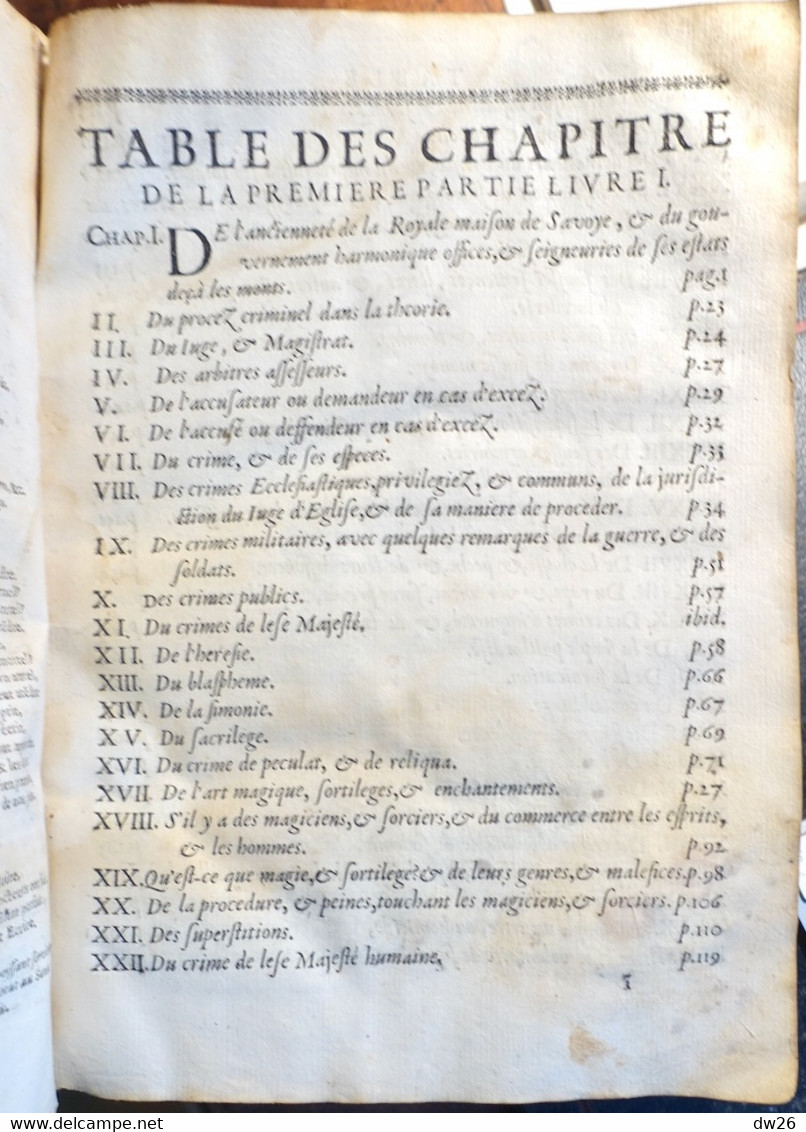 TABLE DES CHAPITRE
DE LA PREMIERE PARTIE LIVRE I.
CHAP.I. DE l'ancienneté de la Royale maison de Savoye, & du gou-
vernement harmonique offices, & ſeigneuries de ſes eſtats
deçà les monts. pag.1
II. Du proceZ criminel dans la theorie. p.23
III. Du Iuge, & Magiſtrat. p.24
IV. Des arbitres aſſeſſeurs. p.27
V. De l'accuſateur ou demandeur en cas d'exceZ. p.29
VI. De l'accuſé ou deffendeur en cas d'exceZ. p.32
VII. Du crime, & de ſes eſpeces. p.33
VIII. Des crimes Eccleſiaſtiques, privilegieZ, & communs, de la juriſdi-
ction du Iuge d'Egliſe, & de ſa maniere de proceder. p.34
IX. Des crimes militaires, avec quelques remarques de la guerre, & des
ſoldats. p.51
X. Des crimes publics. p.57
XI. Du crimes de leſe Majeſté, ibid.
XII. De l'hereſie. p.58
XIII. Du blaſpheme. p.66
XIV. De la ſimonie. p.67
XV. Du ſacrilege. p.69
XVI. Du crime de peculat, & de reliqua. p.71
XVII. De l'art magique, ſortileges, & enchantements. p.27
XVIII. S'il y a des magiciens, & ſorciers, & du commerce entre les eſprits,
& les hommes. p.92
XIX. Qu'eſt-ce que magie, & ſortilege? & de leurs genres, & malefices. p.98
XX. De la procedure, & peines, touchant les magiciens, & ſorciers. p.106
XXI. Des ſuperſtitions. p.110
XXII. Du crime de leſe Majeſté humaine, p.119
dw26